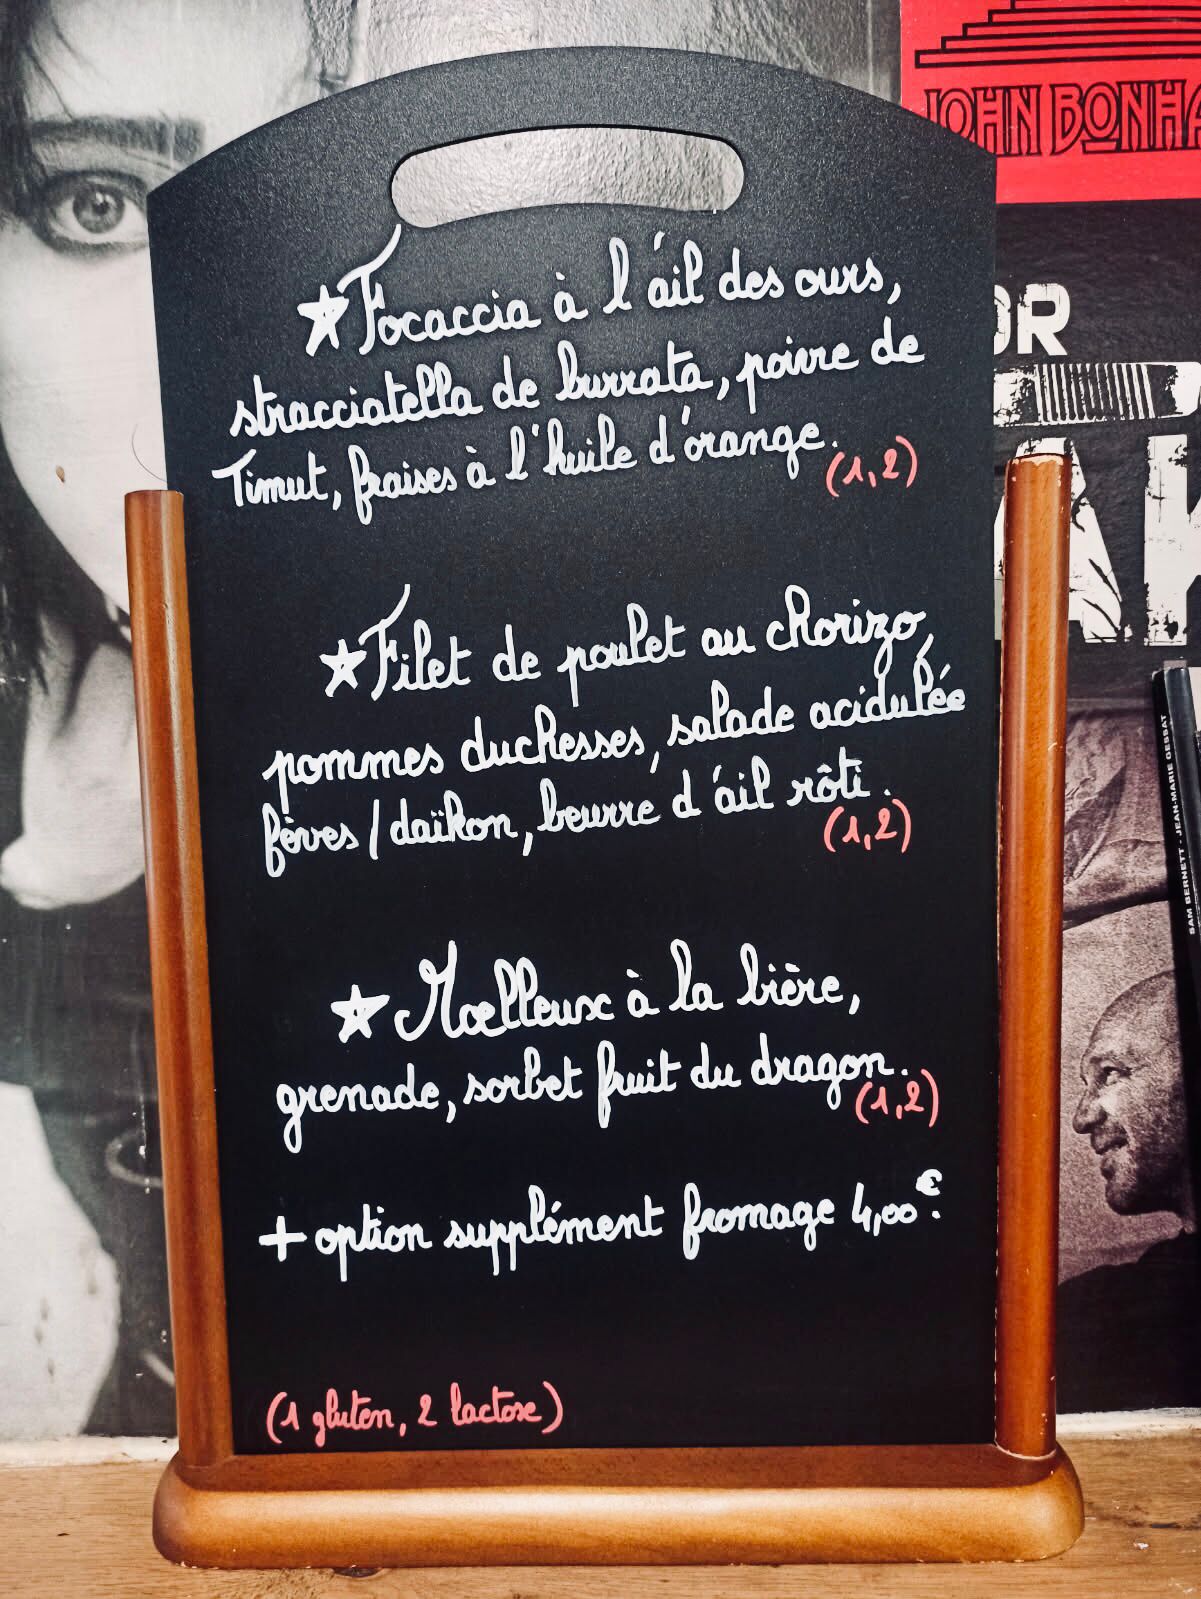 JOHN BONHA
OR
AK
SAM BERNETT - JEAN-MARIE GESSAT
★ Focaccia à l'ail des ours,
stracciatella de burrata, poivre de
Timut, fraises à l'huile d'orange.
(1,2)
★ Filet de poulet au chorizo,
pommes duchesses, salade acidulée
fèves / daïkon, beurre d'ail rôti.
(1,2)
★ Moelleux à la bière,
grenade, sorbet fruit du dragon.
(1,2)
+ option supplément fromage 4,00€.
(1 gluten, 2 lactose)